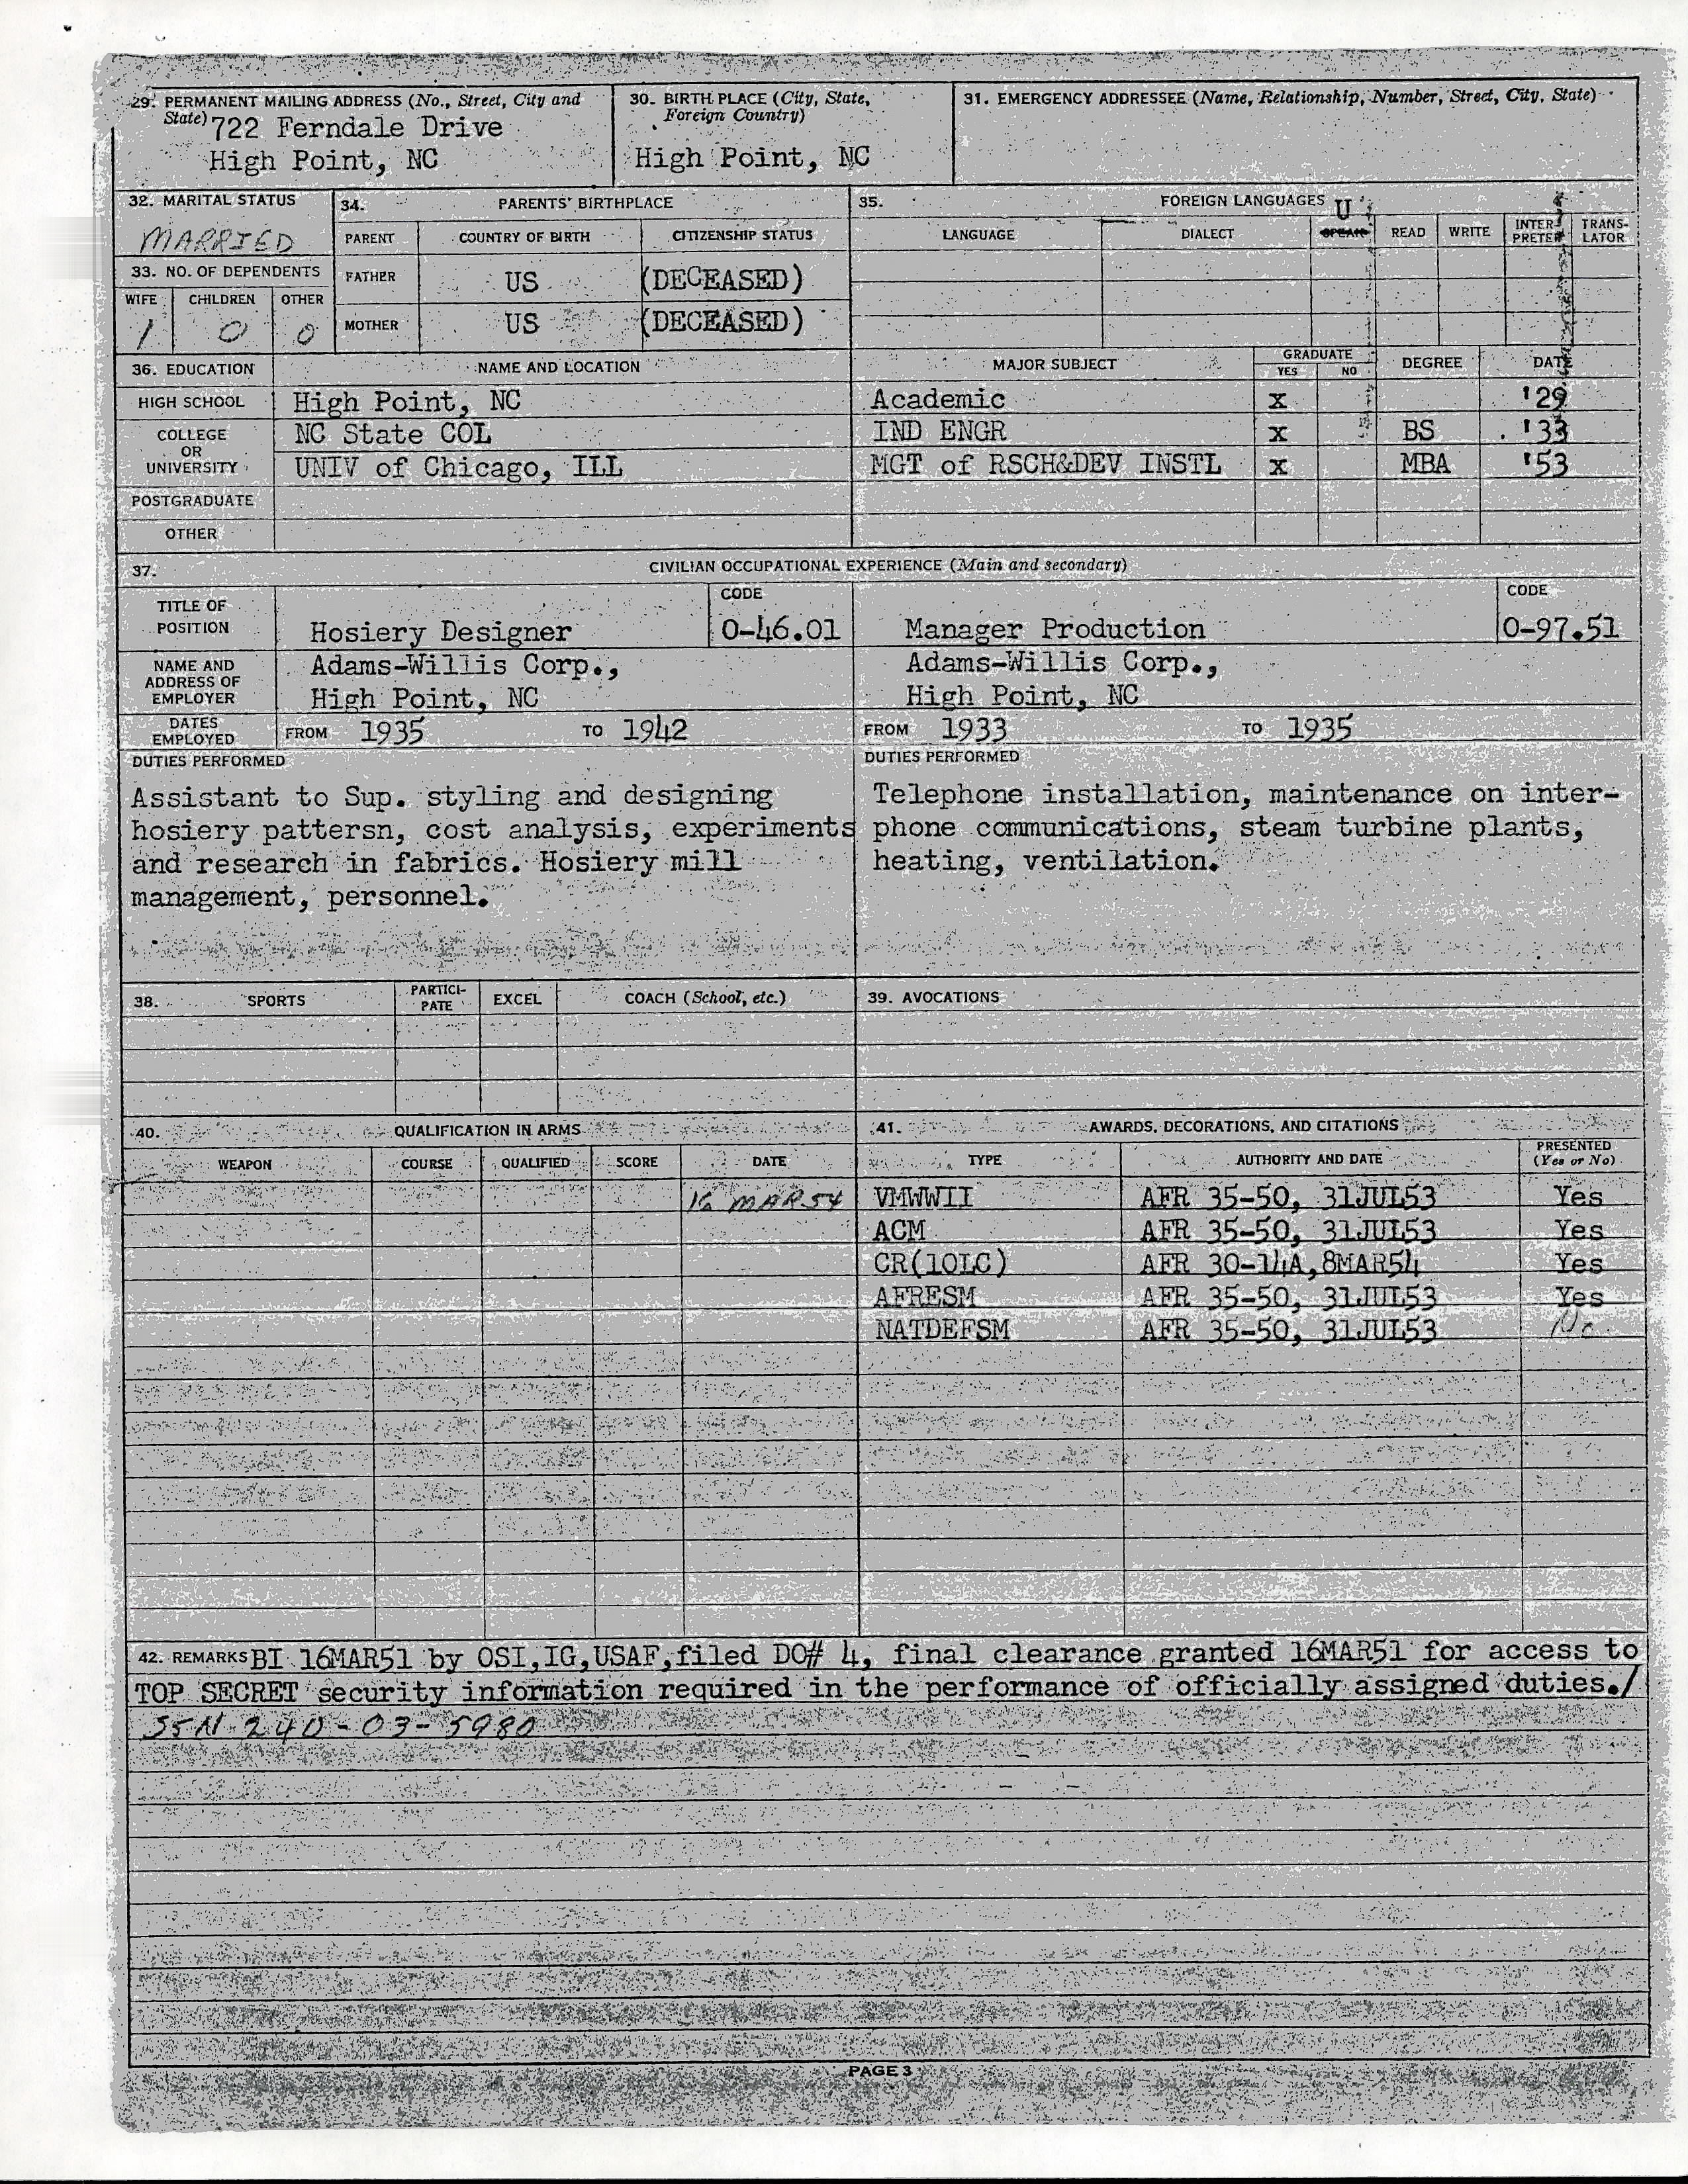 29. PERMANENT MAILING ADDRESS (No., Street, City and State)
722 Ferndale Drive
High Point, NC
30. BIRTH PLACE (City, State, Foreign Country)
High Point, NC
31. EMERGENCY ADDRESSEE (Name, Relationship, Number, Street, City, State)
32. MARITAL STATUS
MARRIED
33. NO. OF DEPENDENTS
WIFE CHILDREN OTHER
1 0 0
34. PARENTS' BIRTHPLACE
PARENT COUNTRY OF BIRTH CITIZENSHIP STATUS
FATHER US (DECEASED)
MOTHER US (DECEASED)
35. FOREIGN LANGUAGES
U
LANGUAGE DIALECT SPEAK READ WRITE INTER-PRETER TRANS-LATOR
36. EDUCATION NAME AND LOCATION MAJOR SUBJECT GRADUATE YES NO DEGREE DATE
HIGH SCHOOL High Point, NC Academic x '29
COLLEGE OR UNIVERSITY NC State COL IND ENGR x BS '33
UNIV of Chicago, ILL MGT of RSCH&DEV INSTL x MBA '53
POSTGRADUATE
OTHER
37. CIVILIAN OCCUPATIONAL EXPERIENCE (Main and secondary)
TITLE OF POSITION Hosiery Designer CODE 0-46.01 Manager Production CODE 0-97.51
NAME AND ADDRESS OF EMPLOYER Adams-Willis Corp., Adams-Willis Corp.,
High Point, NC High Point, NC
DATES EMPLOYED FROM 1935 TO 1942 FROM 1933 TO 1935
DUTIES PERFORMED
Assistant to Sup. styling and designing
hosiery pattersn, cost analysis, experiments
and research in fabrics. Hosiery mill
management, personnel.
DUTIES PERFORMED
Telephone installation, maintenance on inter-
phone communications, steam turbine plants,
heating, ventilation.
38. SPORTS PARTICI-PATE EXCEL COACH (School, etc.)
39. AVOCATIONS
40. QUALIFICATION IN ARMS
WEAPON COURSE QUALIFIED SCORE DATE
16 MAR 54
41. AWARDS, DECORATIONS, AND CITATIONS
TYPE AUTHORITY AND DATE PRESENTED (Yes or No)
VMWWII AFR 35-50, 31JUL53 Yes
ACM AFR 35-50, 31JUL53 Yes
CR(1OLC) AFR 30-14A,8MAR54 Yes
AFRESM AFR 35-50, 31JUL53 Yes
NATDEFSM AFR 35-50, 31JUL53 No
42. REMARKS BI 16MAR51 by OSI,IG,USAF,filed DO# 4, final clearance granted 16MAR51 for access to
TOP SECRET security information required in the performance of officially assigned duties./
SSN 240-03-5980
PAGE 3